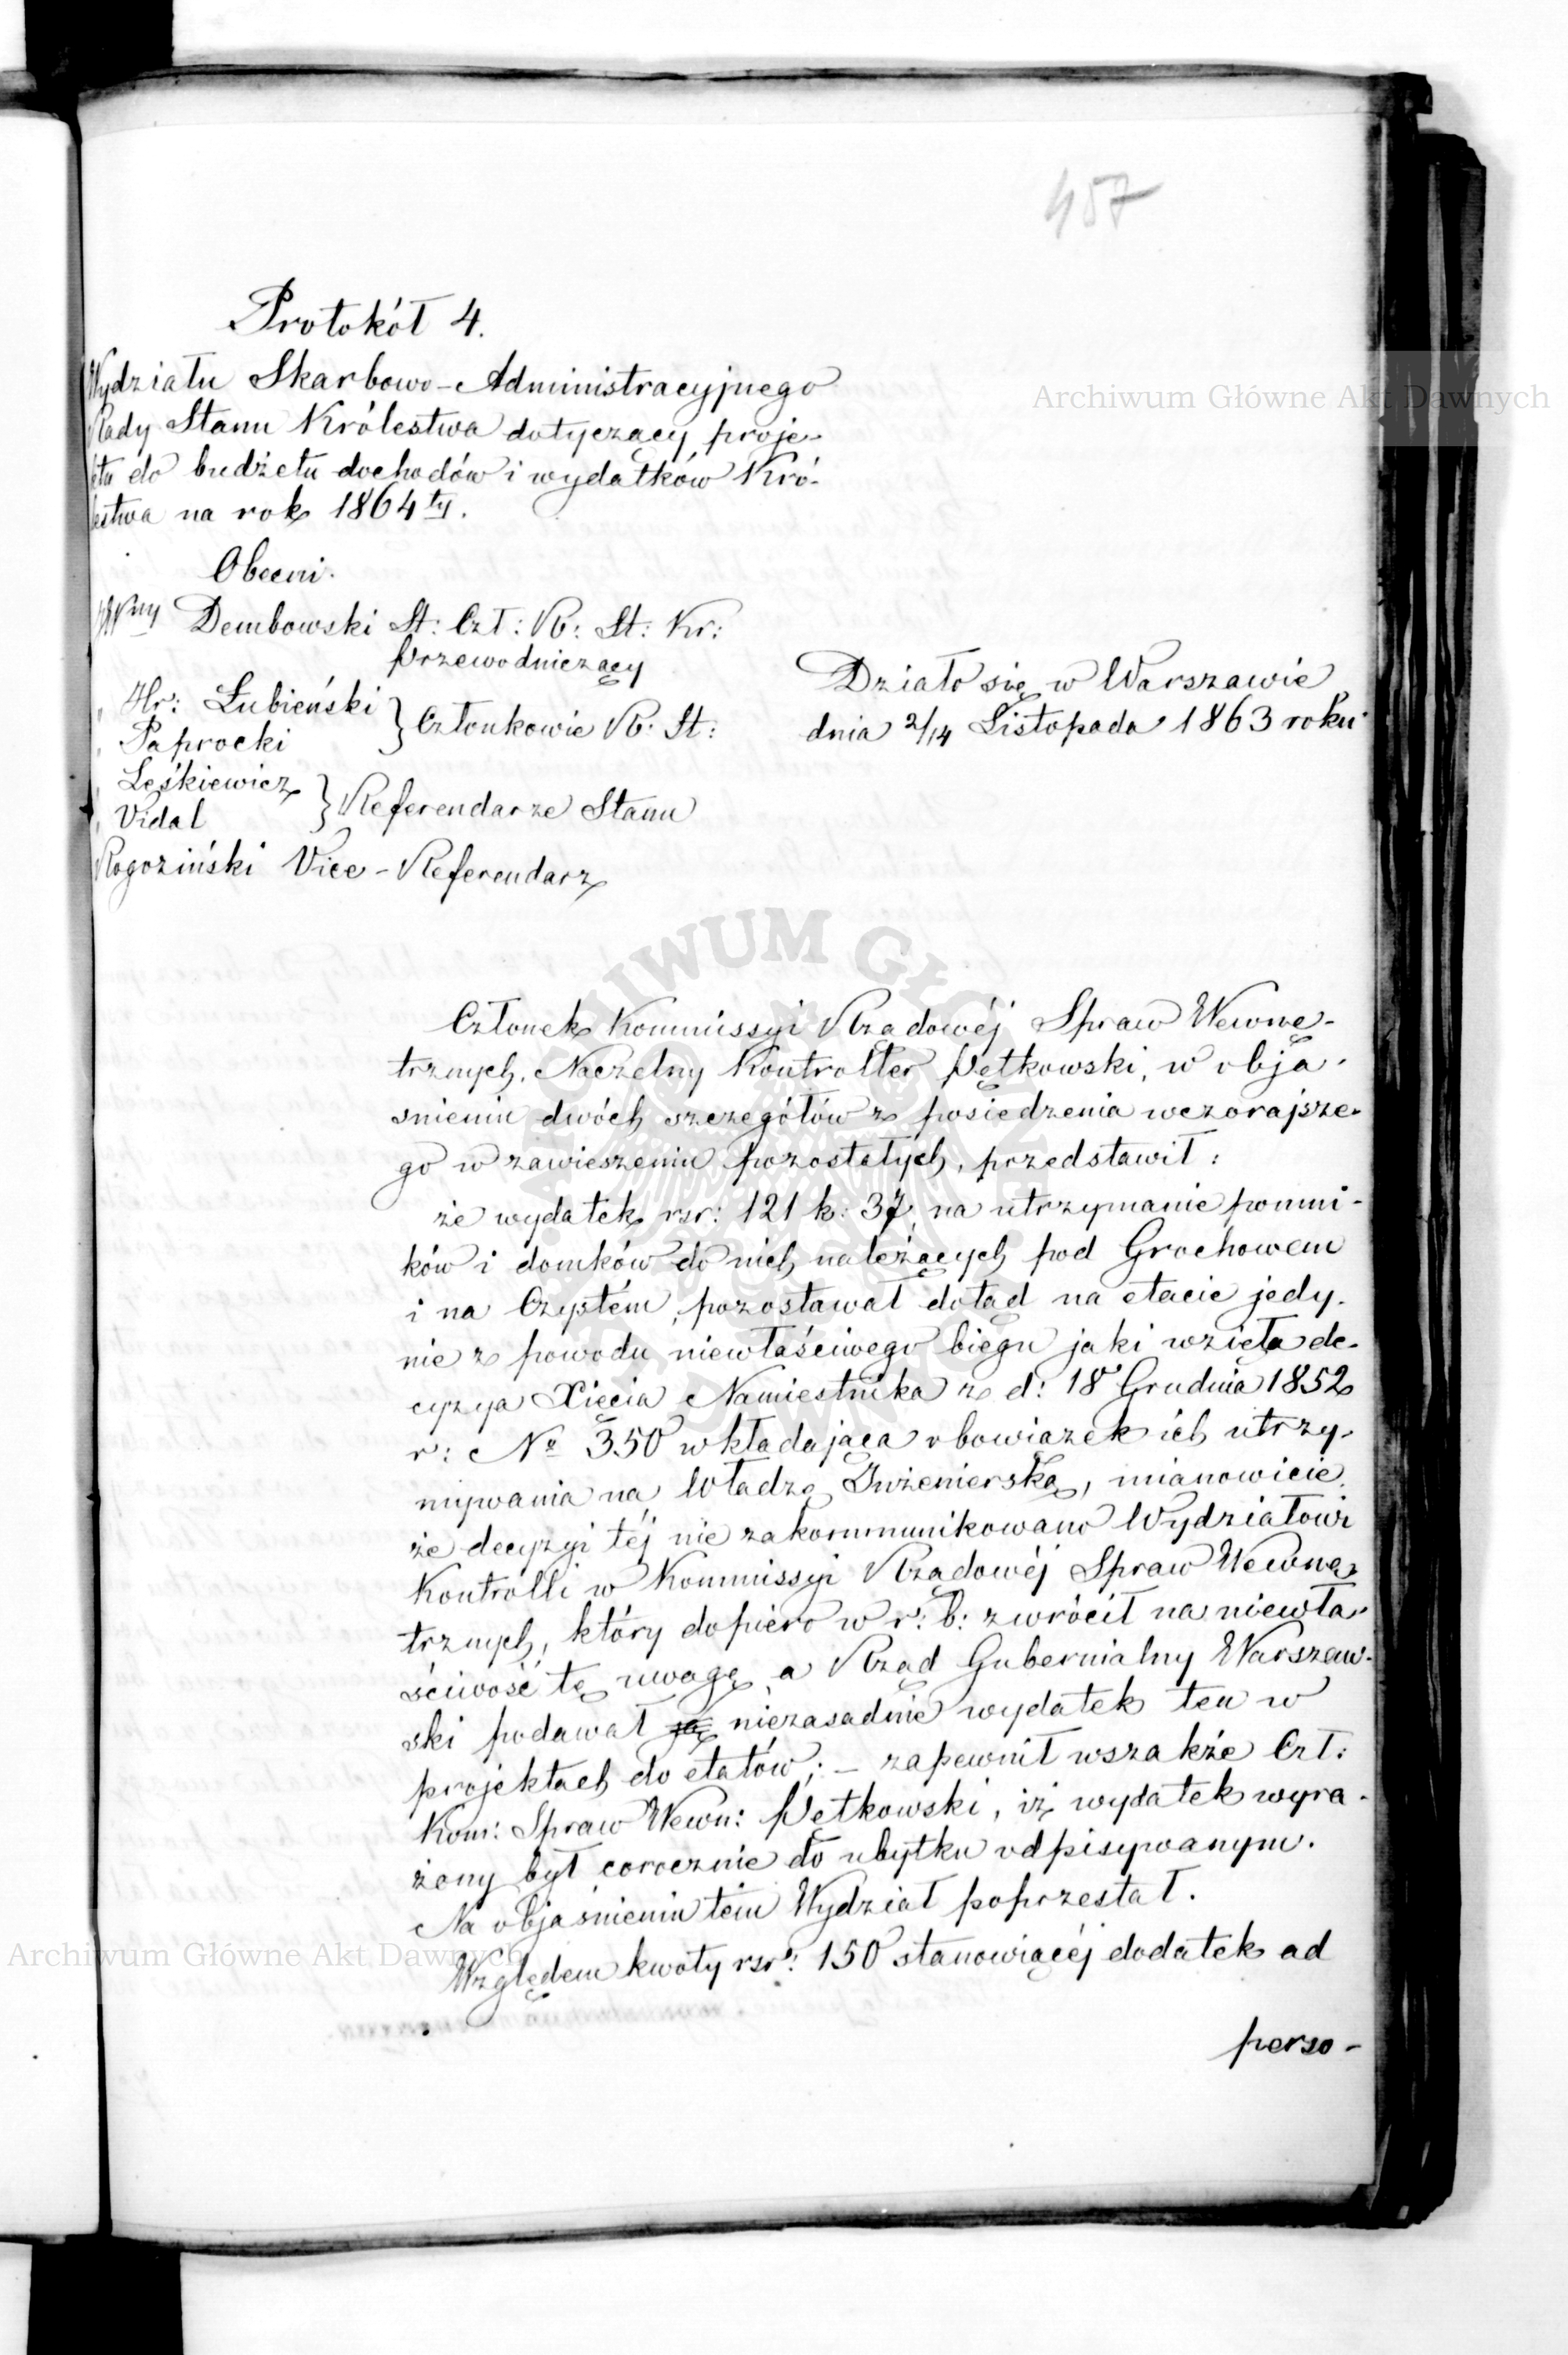 457
Protokół 4.
Wydziału Skarbowo-Administracyjnego
Rady Stanu Królestwa dotyczący proje-
ktu do budżetu dochodów i wydatków Kró-
lestwa na rok 1864ty.
Obecni.
Dembowski St: Czł: R: St: Kr:
Przewodniczący
Hr: Łubieński
Paprocki
} Członkowie R: St:
Leśkiewicz
Vidal
} Referendarze Stanu
Rogoziński Vice-Referendarz
Działo się w Warszawie
dnia 2/14 Listopada 1863 roku
Członek Kommissyi Rządowéj Spraw Wewnę-
trznych, Naczelny Kontroller Pętkowski, w obja-
snieniu dwóch szczegółów z posiedzenia wczorajsze-
go w zawieszeniu pozostałych, przedstawił:
że wydatek rsr: 121 k: 37, na utrzymanie pomni-
ków i domków do nich należących pod Grochowem
i na Czystém, pozostawał dotąd na etacie jedy-
nie z powodu niewłaściwego biegu jaki wzięła de-
cyzya Xięcia Namiestnika z d: 18 Grudnia 1852
r: No 350 wkładająca obowiązek ich utrzy-
mywania na Władzę Inżenierską, mianowicie
że decyzyi téj nie zakommunikowano Wydziałowi
Kontrolli w Kommissyi Rządowéj Spraw Wewnę-
trznych, który dopiero w r: b: zwrócił na niewła-
ściwość tę uwagę, a Rząd Gubernialny Warszaw-
ski podawał niezasadnie wydatek ten w
projektach do etatów; – zapewnił wszakże Czł:
Kom: Spraw Wewn: Pętkowski, iż wydatek wyra-
żony był corocznie do ubytku odpisywanym.
Na objaśnieniu tém Wydział poprzestał.
Względem kwoty rsr: 150 stanowiącéj dodatek ad
perso-
Archiwum Główne Akt Dawnych
Archiwum Główne Akt Dawnych